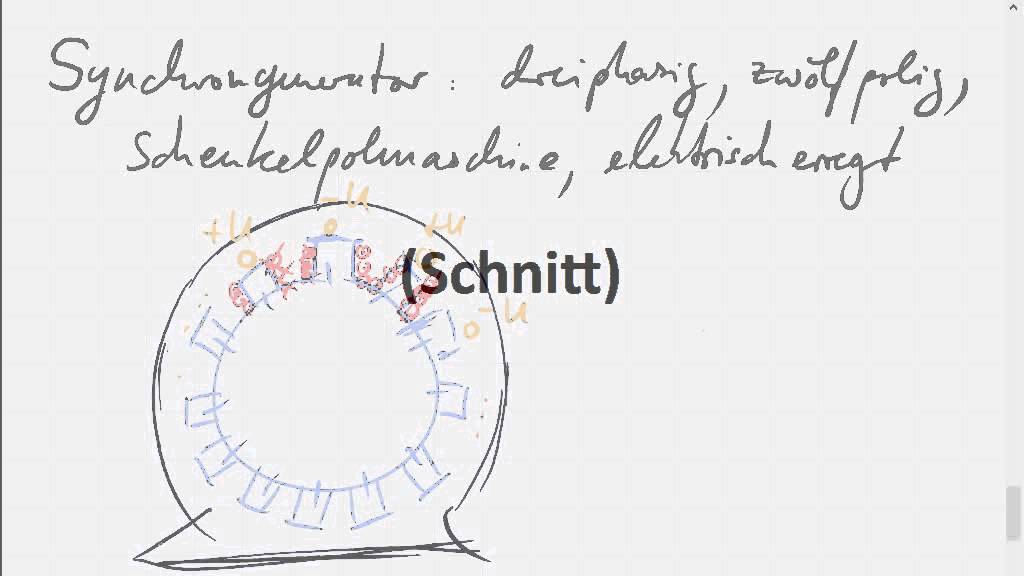 Synchrongenerator: dreiphasig, zwölfpolig,
Schenkelpolmaschine, elektrisch erregt
-U
+U +U
(Schnitt)
-U